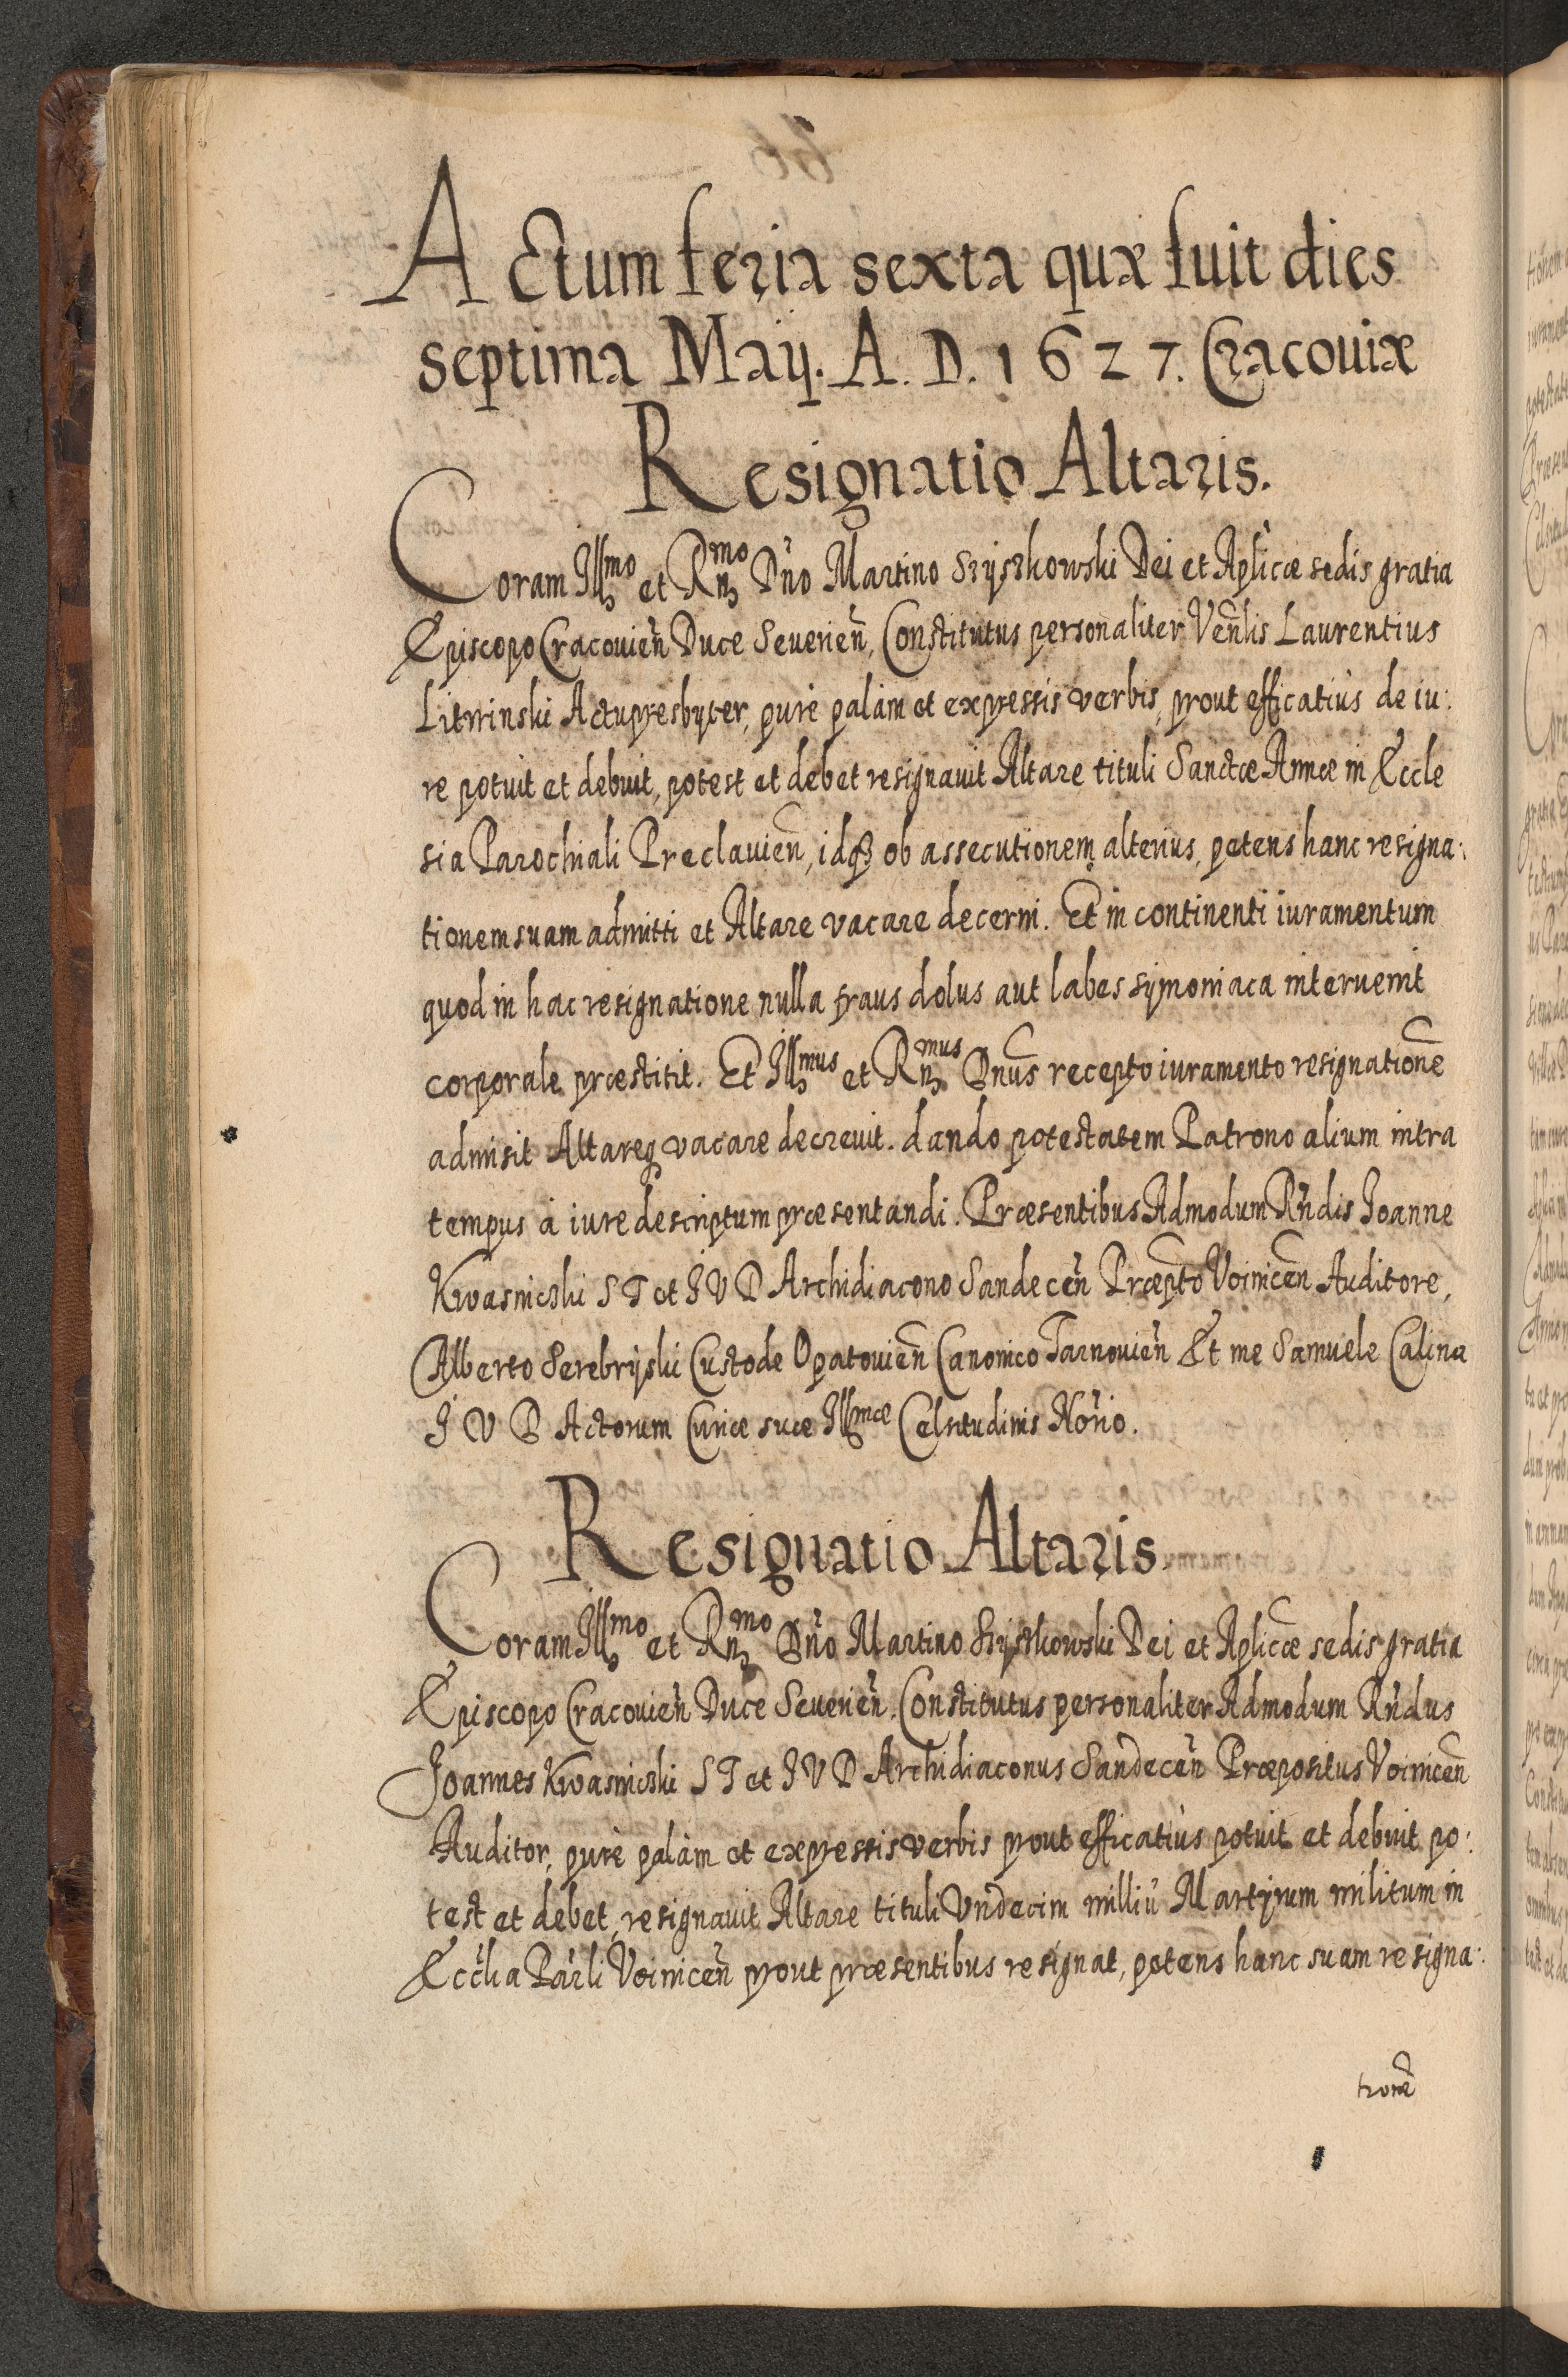 Actum feria sexta quæ fuit dies
septima Maij. A. D. 1627. Cracouiæ
Resignatio Altaris.
Coram Illmo et Rnmo Dno Martino Szyszkowski Dei et Aplicæ sedis gratia
Episcopo Cracouien Duce Seuerien, Constitutus personaliter Venlis Laurentius
Litwinski Actupresbyter, purè palàm et expressis verbis, prout efficatiùs de iu:
re potuit et debuit, potest et debet resignauit Altare tituli Sanctæ Annæ in Eccle
sia Parochiali Preclauien, idq; ob assecutionem alterius, petens hanc resigna:
tionem suam admitti et Altare vacare decerni. Et in continenti iuramentum
quod in hac resignatione nulla fraus dolus aut labes symoniaca interuenit
corporale præstitit. Et Illmus et Rnmus Dnus recepto iuramento resignatione
admisit Altareq vacare decreuit. dando potestatem Patrono alium intra
tempus à iure descriptum præsentandi. Præsentibus Admodum Rndis Joanne
Kwasnicski S T et J V D Archidiacono Sandecen Præpto Voinicen Auditore,
Alberto Serebryski Custode Opatouien Canonico Tarnouien Et me Samuele Calina
J V D Actorum Curiæ suæ Illmæ Celsitudinis Norio.
Resignatio Altaris.
Coram Illmo et Rnmo Dno Martino Szyszkowski Dei et Aplicæ sedis gratia
Episcopo Cracouien Duce Seuerien. Constitutus personaliter Admodum Rndus
Joannes Kwasnicski S T et J V D Archidiaconus Sandecen Præpositus Voinicen
Auditor, purè palàm et expressis verbis prout efficatiùs potuit et debuit po:
test et debet, resignauit Altare tituli Vndecim milliu Martyrum militum in
Ecclia Parli Voinicen prout præsentibus resignat, petens hanc suam resigna:
tione